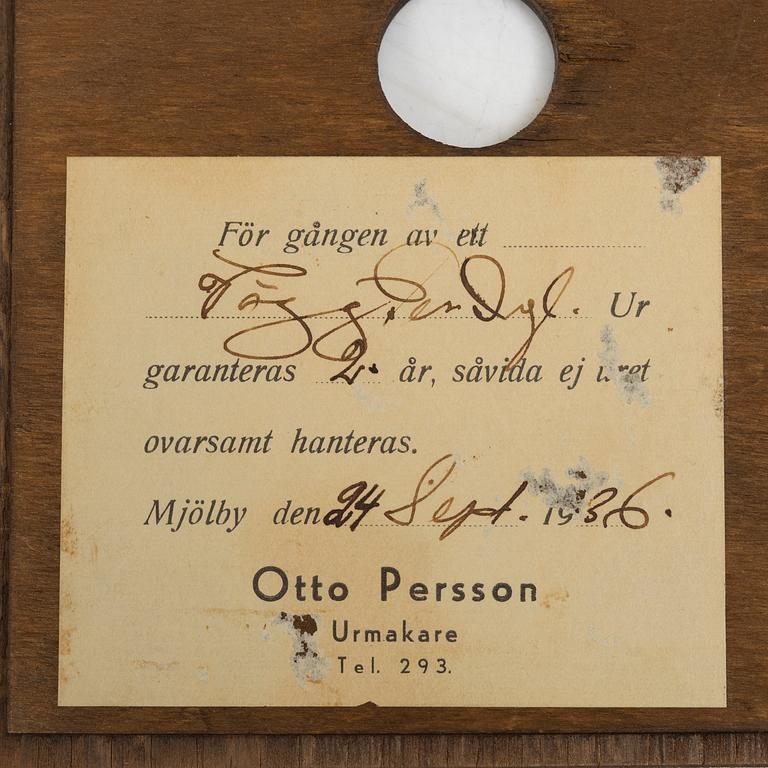 För gången av ett
Vägg Pendyl. Ur
garanteras 2. år, såvida ej uret
ovarsamt hanteras.
Mjölby den 24 Sept. 1936.
Otto Persson
Urmakare
Tel. 293.